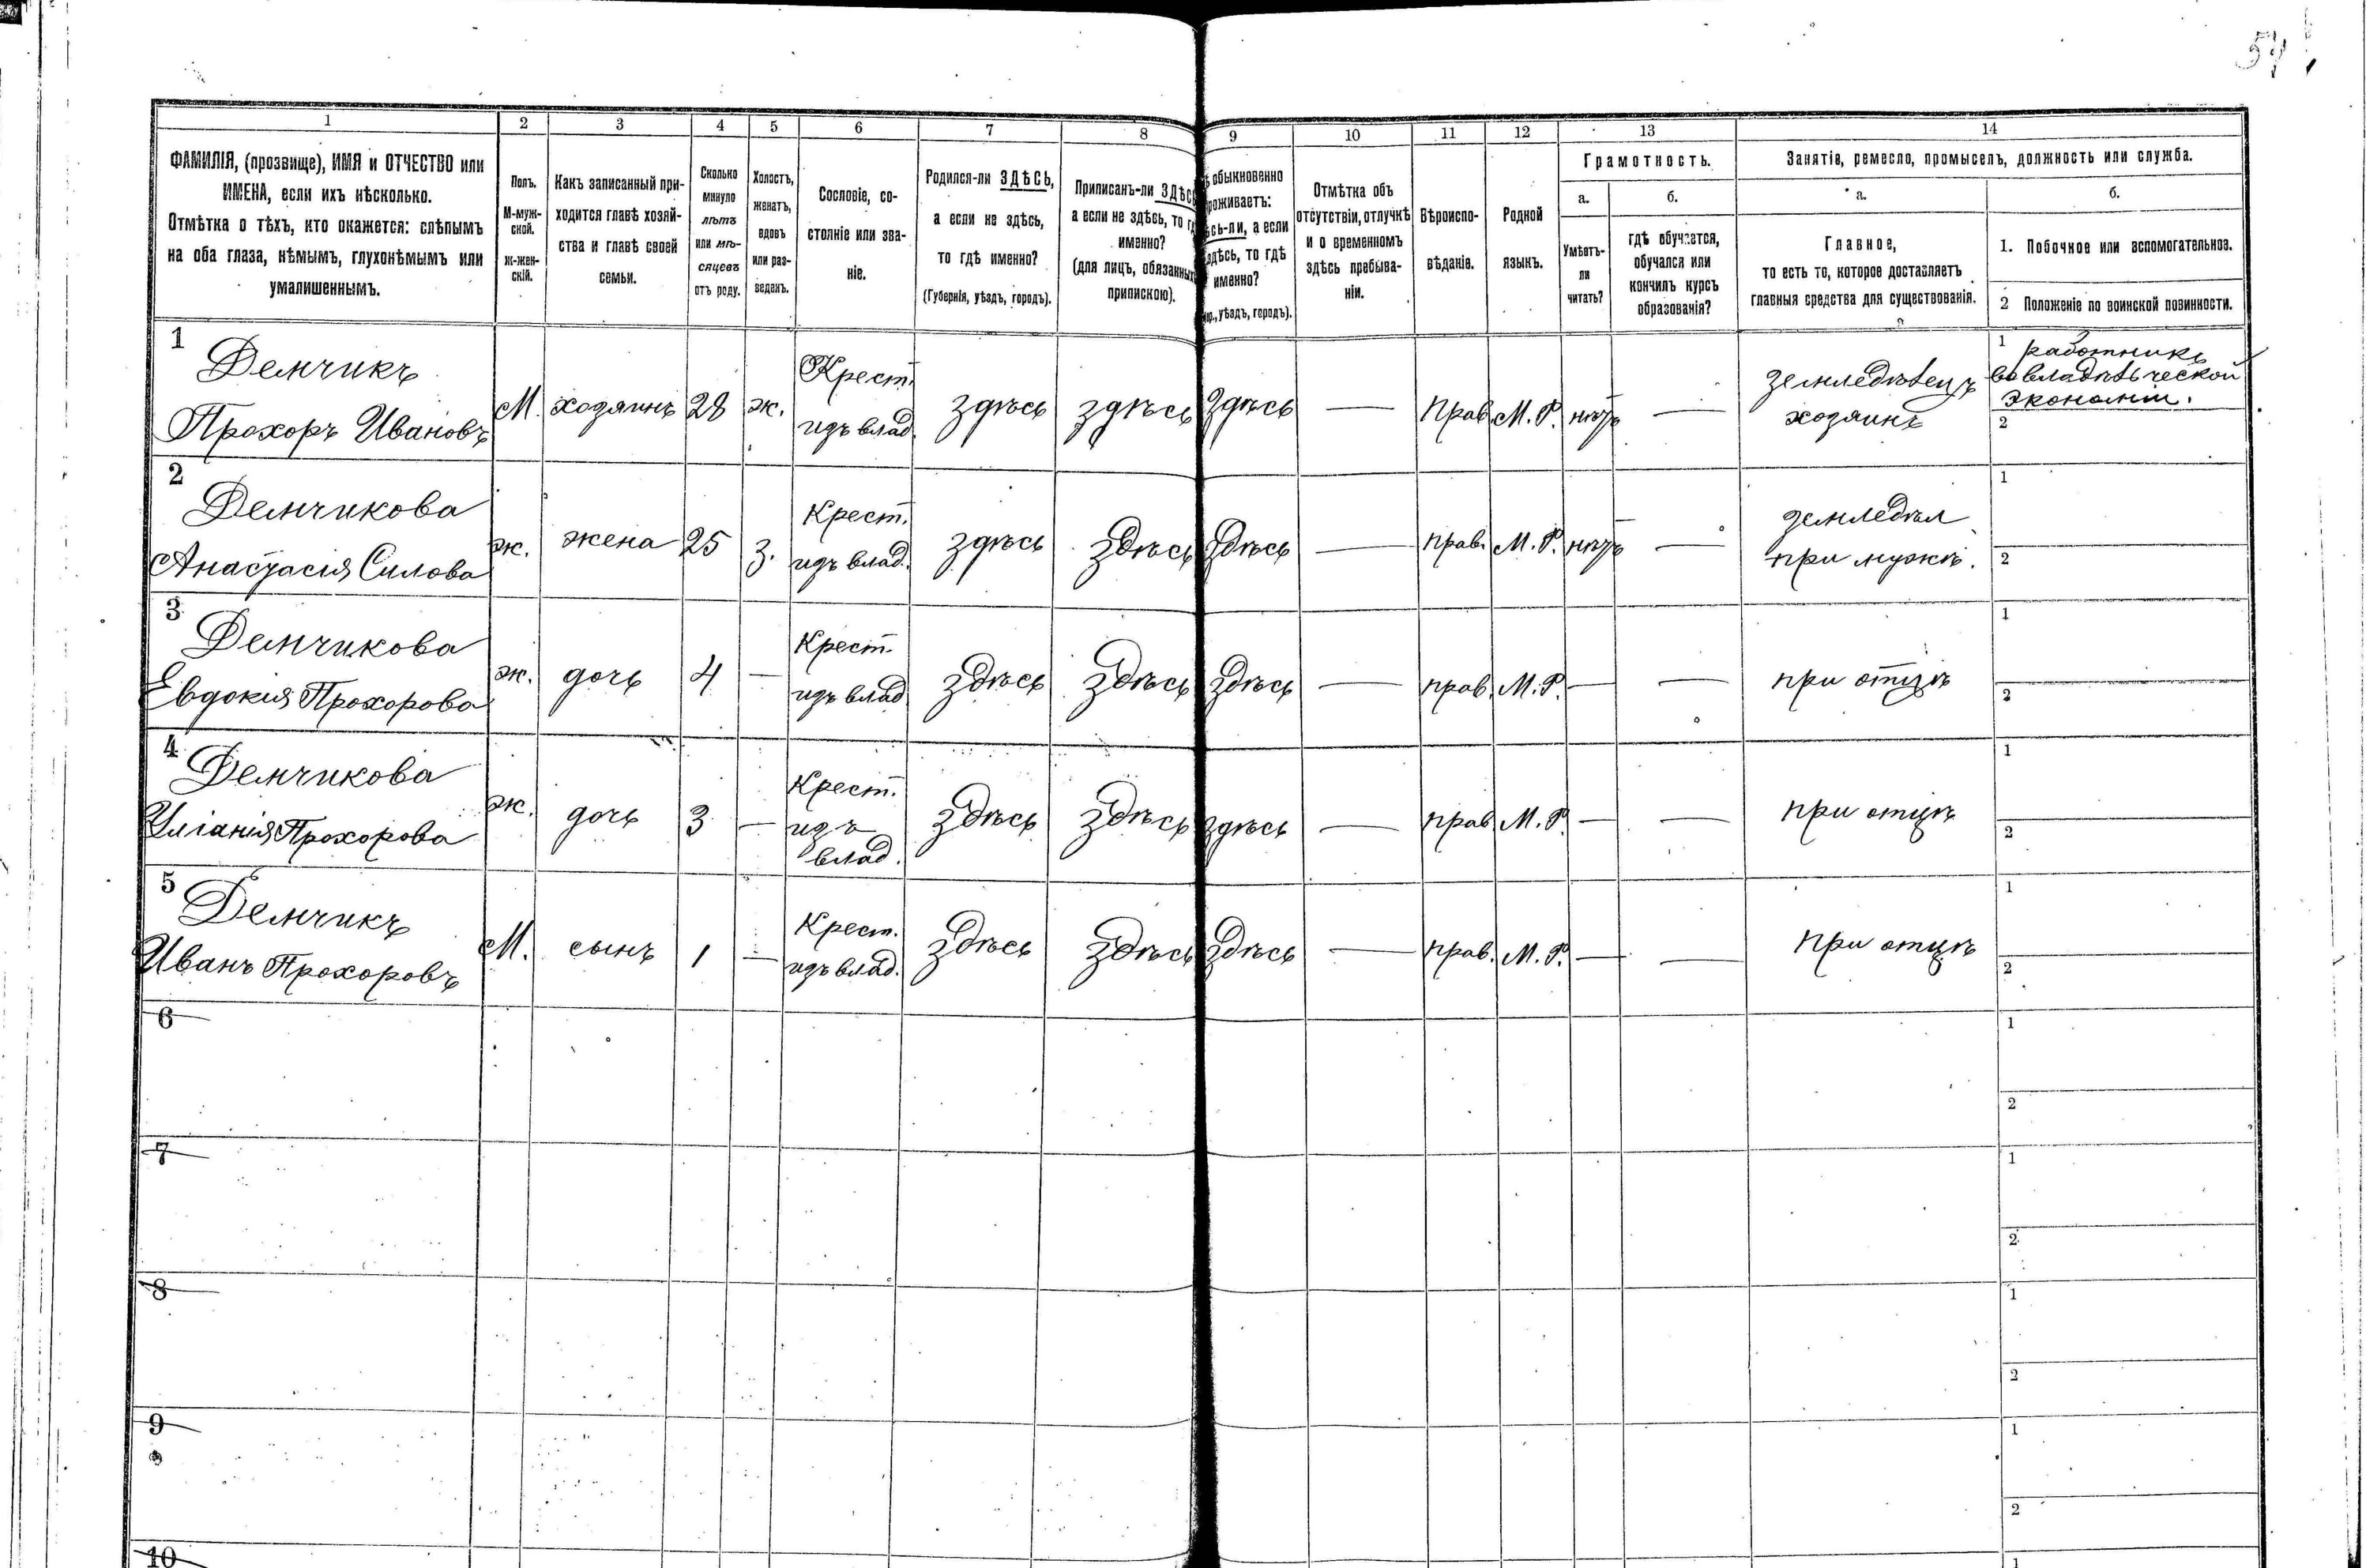 54
1 2 3 4 5 6 7 8 9 10 11 12 13 14
ФАМИЛІЯ, (прозвище), ИМЯ и ОТЧЕСТВО или
ИМЕНА, если ихъ нѣсколько.
Отмѣтка о тѣхъ, кто окажется: слѣпымъ
на оба глаза, нѣмымъ, глухонѣмымъ или
умалишеннымъ.
Полъ.
М-муж-
ской.
ж-жен-
скій.
Какъ записанный при-
ходится главѣ хозяй-
ства и главѣ своей
семьи.
Сколько
минуло
лѣтъ
или мѣ-
сяцевъ
отъ роду.
Холостъ,
женатъ,
вдовъ
или раз-
веденъ.
Сословіе, со-
стояніе или зва-
ніе.
Родился-ли ЗДѢСЬ,
а если не здѣсь,
то гдѣ именно?
(Губернія, уѣздъ, городъ).
Приписанъ-ли ЗДѢСЬ
а если не здѣсь, то
именно?
(для лицъ, обязанны
припискою).
обыкновенно
роживаетъ:
сь-ли, а если
дѣсь, то гдѣ
именно?
уѣздъ, городъ).
Отмѣтка объ
отсутствіи, отлучкѣ
и о временномъ
здѣсь пребыва-
ніи.
Вѣроиспо-
вѣданіе.
Родной
языкъ.
Грамотность.
а.
Умѣетъ-
ли
читать?
б.
гдѣ обучается,
обучался или
кончилъ курсъ
образованія?
Занятіе, ремесло, промыселъ, должность или служба.
а.
Главное,
то есть то, которое доставляетъ
главныя средства для существованія.
б.
1. Побочное или вспомогательное.
2 Положеніе по воинской повинности.
1
Демчикъ
Прохоръ Ивановъ
М. хозяинъ 28 ж.
Крест.
изъ влад.
здѣсь здѣсь здѣсь — Прав. М. Р. нѣтъ —
земледѣлецъ
хозяинъ
1 работникъ
во владѣльческой
экономіи.
2
2
Демчикова
Анастасія Силова
ж. жена 25 З.
Крест.
изъ влад.
здѣсь здѣсь здѣсь — прав. М. Р. нѣтъ —
земледѣл
при мужѣ.
1
2
3
Демчикова
Евдокия Прохорова
ж. дочь 4 —
Крест.
изъ влад
здѣсь здѣсь здѣсь — прав. М. Р. — —
при отцѣ
1
2
4
Демчикова
Уліанія Прохорова
ж. дочь 3 —
Крест.
изъ
влад.
здѣсь здѣсь здѣсь — прав. М. Р. — —
при отцѣ
1
2
5
Демчикъ
Иванъ Прохоровъ
М. сынъ 1 —
Крест.
изъ влад.
здѣсь здѣсь здѣсь — прав. М. Р. — —
при отцѣ
1
2
6
1
2
7
1
2
8
1
2
9
1
2
10
1